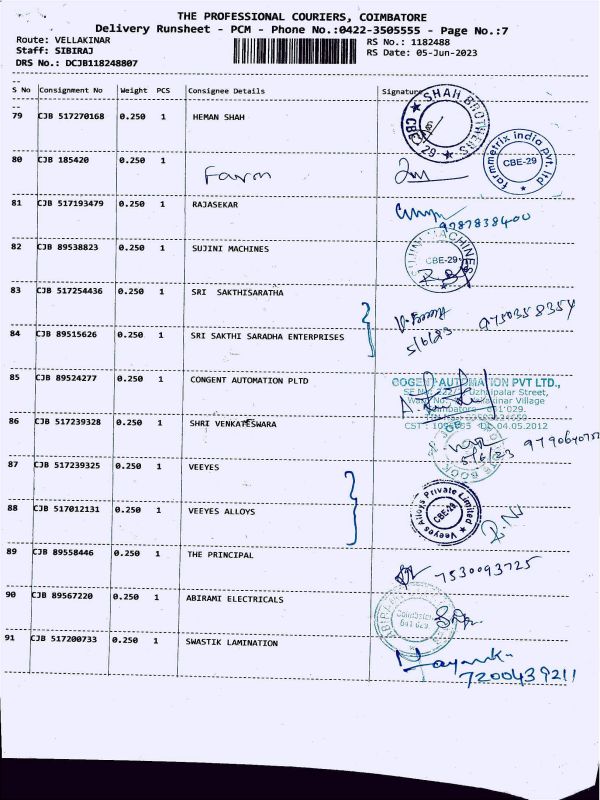 THE PROFESSIONAL COURIERS, COIMBATORE
Delivery Runsheet - PCM - Phone No.:0422-3505555 - Page No.:7
Route: VELLAKINAR RS No.: 1182488
Staff: SIBIRAJ RS Date: 05-Jun-2023
DRS No.: DCJB118248807
S No Consignment No Weight PCS Consignee Details Signature
79 CJB 517270168 0.250 1 HEMAN SHAH
SHAH BROTHERS CBE-29
80 CJB 185420 0.250 1 Farm
farmmetrix india pvt. ltd CBE-29
81 CJB 517193479 0.250 1 RAJASEKAR
9787838400
82 CJB 89538823 0.250 1 SUJINI MACHINES
SUJINI MACHINES CBE-29
83 CJB 517254436 0.250 1 SRI SAKTHISARATHA
9750358354
84 CJB 89515626 0.250 1 SRI SAKTHI SARADHA ENTERPRISES
5/6/23
85 CJB 89524277 0.250 1 CONGENT AUTOMATION PLTD
COGENT AUTOMATION PVT LTD.,
Uzhaipalar Street,
Village
Coimbatore - 641 029.
04.05.2012
86 CJB 517239328 0.250 1 SHRI VENKATESWARA
5/6/23
87 CJB 517239325 0.250 1 VEEYES
88 CJB 517012131 0.250 1 VEEYES ALLOYS
Veeyes Alloys Private Limited CBE-29
89 CJB 89558446 0.250 1 THE PRINCIPAL
7530093725
90 CJB 89567220 0.250 1 ABIRAMI ELECTRICALS
Coimbatore
641 029
91 CJB 517200733 0.250 1 SWASTIK LAMINATION
7200439211